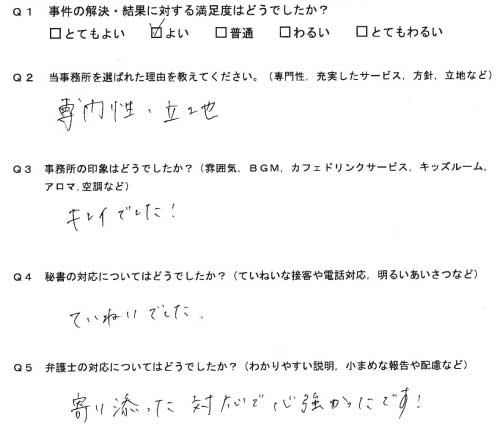 Q1 事件の解決・結果に対する満足度はどうでしたか？
□とてもよい ☑よい □普通 □わるい □とてもわるい
Q2 当事務所を選ばれた理由を教えてください。（専門性，充実したサービス，方針，立地など）
専門性・立地
Q3 事務所の印象はどうでしたか？（雰囲気，BGM，カフェドリンクサービス，キッズルーム，
アロマ,空調など）
キレイでした！
Q4 秘書の対応についてはどうでしたか？（ていねいな接客や電話対応，明るいあいさつなど）
ていねいでした．
Q5 弁護士の対応についてはどうでしたか？（わかりやすい説明，小まめな報告や配慮など）
寄り添った対応で心強かったです！